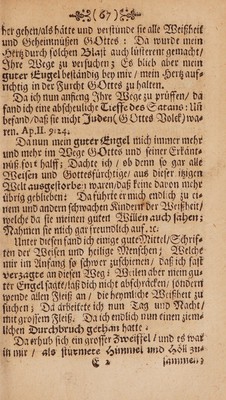 (67)
her gehen/als hätte und verstünde sie alle Weißheit
und Geheimnüßen GOttes: Da wurde mein
Hertz durch solchen Blast auch lüsterent gemacht/
Ihre Wege zu versuchen; Es blieb aber mein
guter Engel beständig bey mir/mein Hertz auf-
richtig in der Furcht GOttes zu halten.
Da ich nun anfieng Ihre Wege zu prüffen/da
fand ich eine abscheuliche Tieffe des Satans: Und
befand/daß sie nicht Juden (GOttes Volck) wa-
ren. Ap. II. 9. 24.
Da nun mein guter Engel mich immer mehr
und mehr im Wege GOttes und seiner Erkänt-
nüß fort halff; Dachte ich/ob denn so gar alle
Weisen und Gottesfürchtige/aus dieser itzigen
Welt ausgestorben waren/daß keine davon mehr
übrig geblieben; Da führte er mich endlich zu ei-
nem und andern schwachen Kindern der Weißheit/
welche da sie meinen guten Willen auch sahen;
Nahmen sie mich gar freundlich auf. ec.
Unter diesen fand ich einige gute Mittel/Schriff-
ten der Weisen und heilige Menschen; Welche
mir im Anfang so schwer zuschienen/daß ich fast
verzagte an diesen Weg: Weilen aber mein gu-
ter Engel sagte/laß dich nicht abschräcken/sondern
wende allen Fleiß an/die heymliche Weißheit zu
suchen; Da arbeitete ich nun Tag und Nacht/
mit grossem Fleiß. Da ich endlich nun einen ziem-
lichen Durchbruch gethan hatte:
Da erhub sich ein grosser Zweiffel/und es war
in mir/als stürmete Himmel und Höll zu-
E 2 sammen/